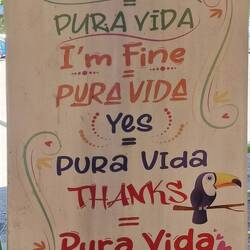 =
PURA VIDA
I'm Fine
=
PURA VIDA
Yes
=
PURA Vida
THANKS
=
Pura Vida